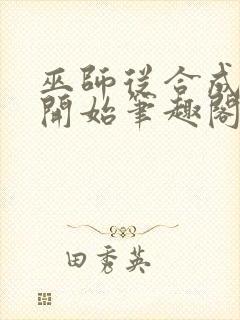 巫師從合成
開始筆趣閣
田秀英